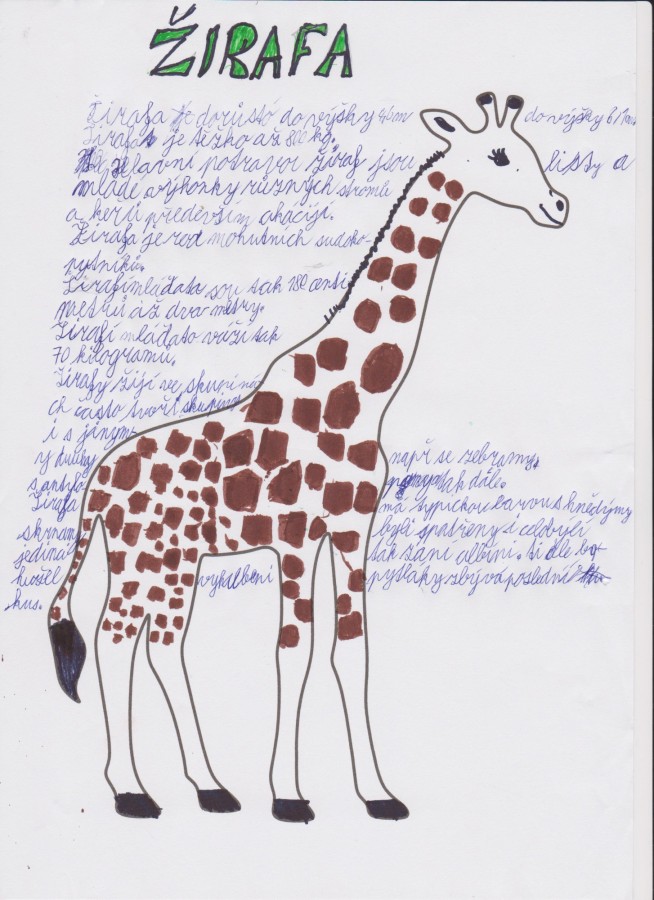 ŽIRAFA
Žirafa dorůstá do výšky do výšky
Žirafa je těžká až 800 kg.
hlavní potravou žiraf jsou listy a
mladé výhonky různých stromů
a kerů především akácijí.
Žirafa je rod mohutních sudoko-
pytníků.
Žirafímláďata sou tak 180 centi
metrů až dva metry.
Žirafí mláďato váží tak
70 kilogramů.
Žirafy žijí ve skupiná
ch často tvoří skupiny
i s jinými
y druhy např se zebramy,
tak dále.
Žirafa má typickou barvu s hnědýmy
skrnamy byli spatřeny
jediná albíni.
kvůli pytláky zbývá poslední
kus.